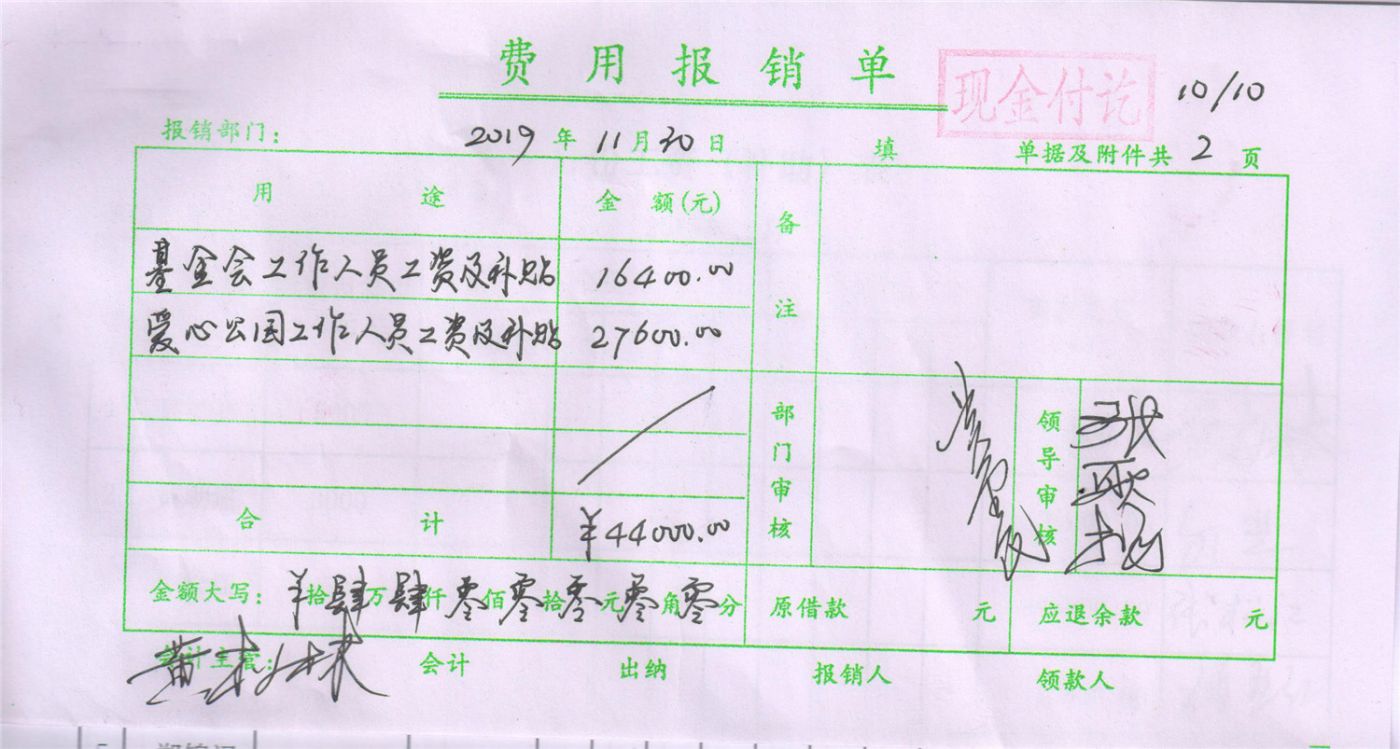 费用报销单
现金付讫
10/10
报销部门: 2019年11月30日 填 单据及附件共2页
用途 金额(元) 备注
基金会工作人员工资及补贴 16400.00
爱心公园工作人员工资及补贴 27600.00
部门审核 领导审核
合计 ¥44000.00
金额大写: ¥拾肆万肆仟零佰零拾零元零角零分 原借款 元 应退余款 元
会计主管: 会计 出纳 报销人 领款人